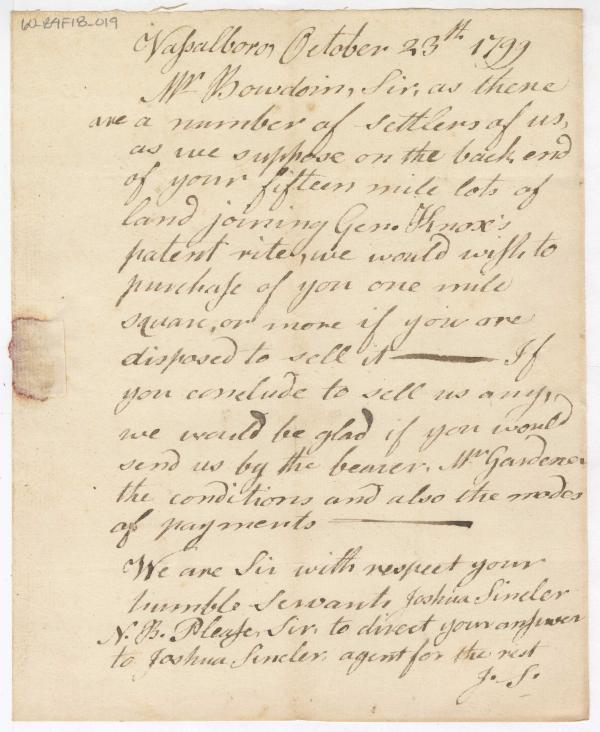 W-R4F18-019
Vassalboro, October 23th 1799
Mr Bowdoin, Sir, as there
are a number of settlers of us,
as we suppose on the back end
of your fifteen mile lots of
land joining Gen. Knox's
patent rite, we would wish to
purchase of you one mile
square, or more if you are
disposed to sell it — If
you conclude to sell us any,
we would be glad if you would
send us by the bearer, Mr Gardener
the conditions and also the modes
of payments —
We are Sir with respect your
humble servants Joshua Sincler
N. B. Please, Sir, to direct your answer
to Joshua Sincler, agent for the rest
J. S.